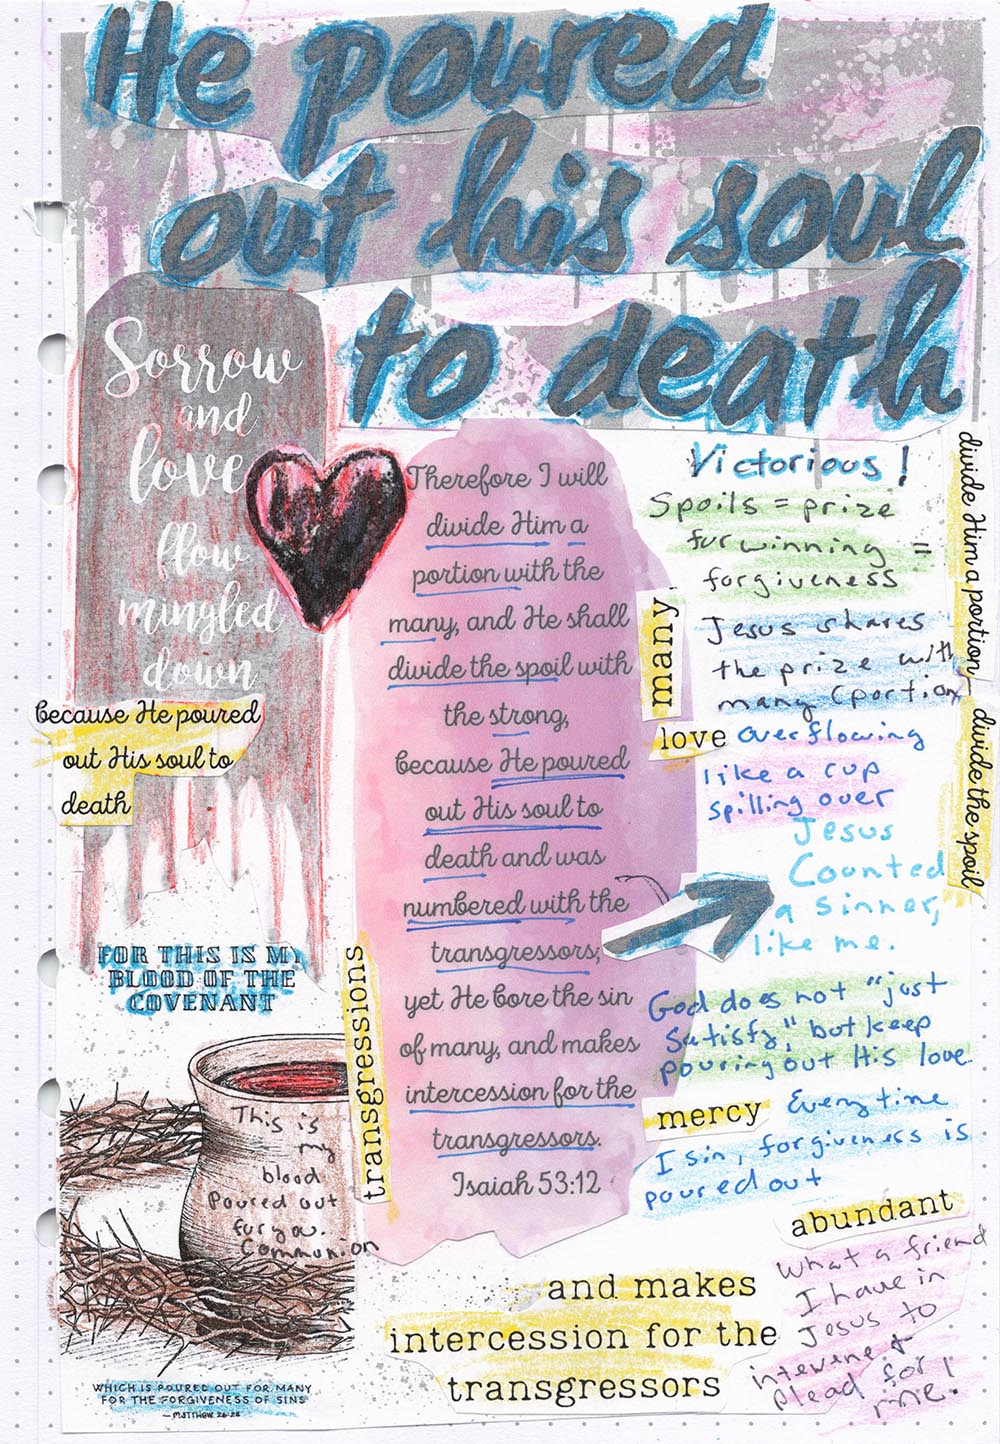 He poured
out his soul
to death
Sorrow
and
love
flow
mingled
down
because He poured
out His soul to
death
FOR THIS IS MY
BLOOD OF THE
COVENANT
This is
my
blood
Poured out
for you.
Communion
WHICH IS POURED OUT FOR MANY
FOR THE FORGIVENESS OF SINS
—MATTHEW 26:28
transgressions
Therefore I will
divide Him a
portion with the
many, and He shall
divide the spoil with
the strong,
because He poured
out His soul to
death and was
numbered with the
transgressors;
yet He bore the sin
of many, and makes
intercession for the
transgressors.
Isaiah 53:12
Victorious!
Spoils = prize
for winning =
forgiveness
many
Jesus shares
the prize with
many (portion)
love overflowing
like a cup
spilling over
Jesus
Counted
a sinner,
like me.
God does not "just
Satisfy", but keep
pouring out His love
mercy Everytime
I sin, forgiveness is
poured out
abundant
What a friend
I have in
Jesus to
intervene +
Plead for
me!
divide Him a portion
divide the spoil
and makes
intercession for the
transgressors